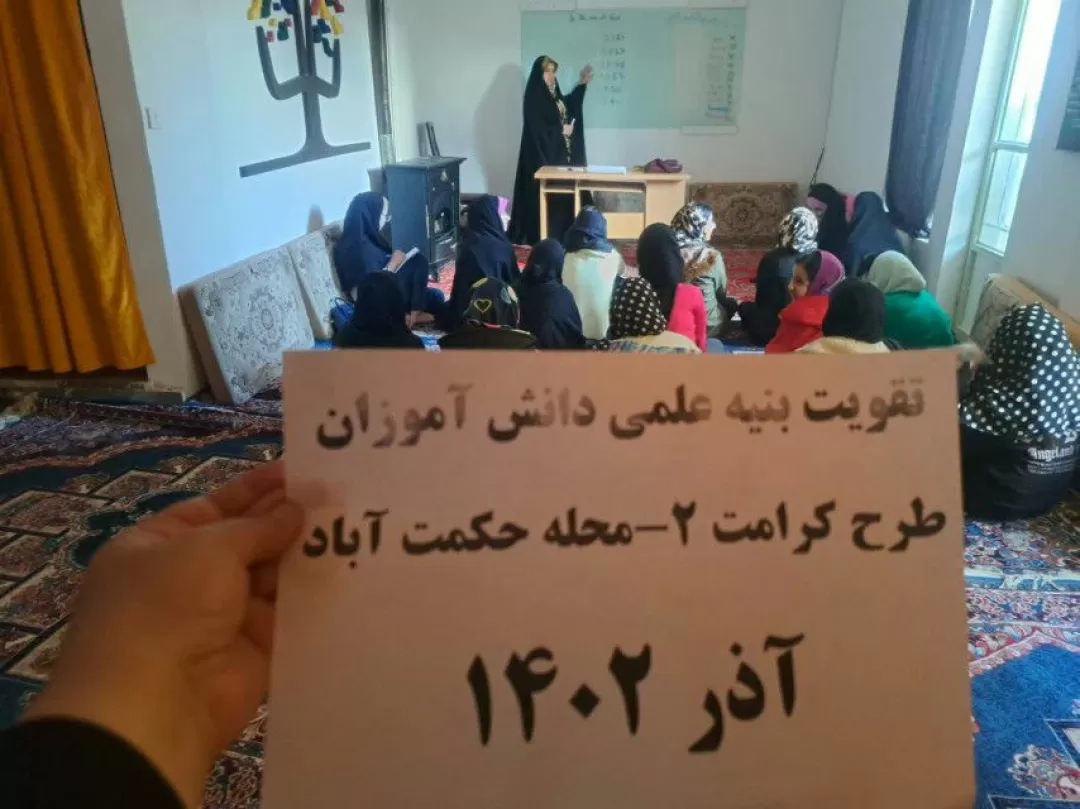 تقویت بنیه علمی دانش آموزان
طرح کرامت ۲-محله حکمت آباد
آذر ۱۴۰۲